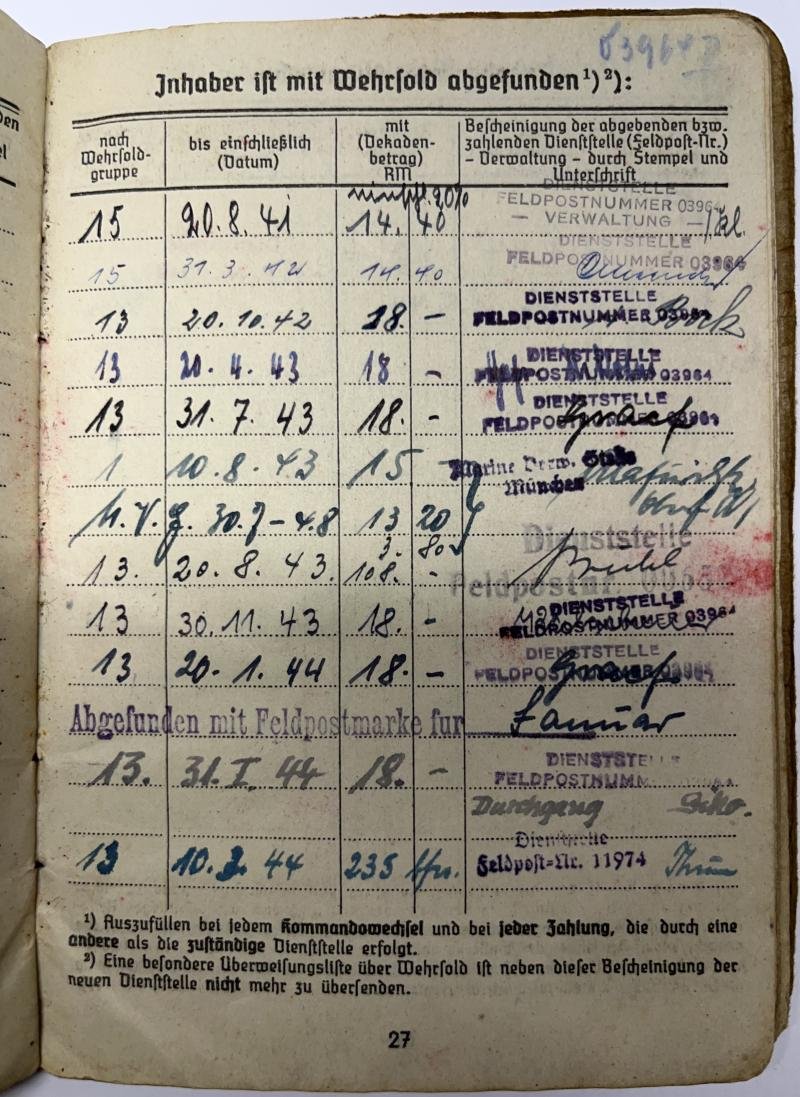 03964
Inhaber ist mit Wehrsold abgefunden¹)²):
nach Wehrsold-gruppe | bis einschließlich (Datum) | mit (Dekaden-betrag) RM | Bescheinigung der abgebenden bzw. zahlenden Dienststelle (Feldpost-Nr.) – Verwaltung – durch Stempel und Unterschrift
20%
DIENSTSTELLE
FELDPOSTNUMMER 03964
15 20.8.41 14. 40 — VERWALTUNG —
DIENSTSTELLE
15 31.3.42 14. 40 FELDPOSTNUMMER 03964
DIENSTSTELLE
13 20.10.42 18. – FELDPOSTNUMMER 03964
DIENSTSTELLE
13 20.4.43 18 – FELDPOSTNUMMER 03964
DIENSTSTELLE
13 31.7.43 18. – FELDPOSTNUMMER 03964 Graef
1 10.8.43 15 Marine Verw. Stelle
München
30.7–4.8 13 20
Dienststelle
3. 80
13. 20.8.43. 108. – Feldpostnr.
DIENSTSTELLE
13 30.11.43 18. – FELDPOSTNUMMER 03964
DIENSTSTELLE
13 20.1.44 18. – FELDPOSTNUMMER 03964 Graef
Abgefunden mit Feldpostmarke für Januar
DIENSTSTELLE
13. 31.I.44 18. – FELDPOSTNUMM
Durchgang
Dienststelle
13 10.2.44 235 Feldpost-Nr. 11974
¹) Auszufüllen bei jedem Kommandowechsel und bei jeder Zahlung, die durch eine
andere als die zuständige Dienststelle erfolgt.
²) Eine besondere Überweisungsliste über Wehrsold ist neben dieser Bescheinigung der
neuen Dienststelle nicht mehr zu übersenden.
27